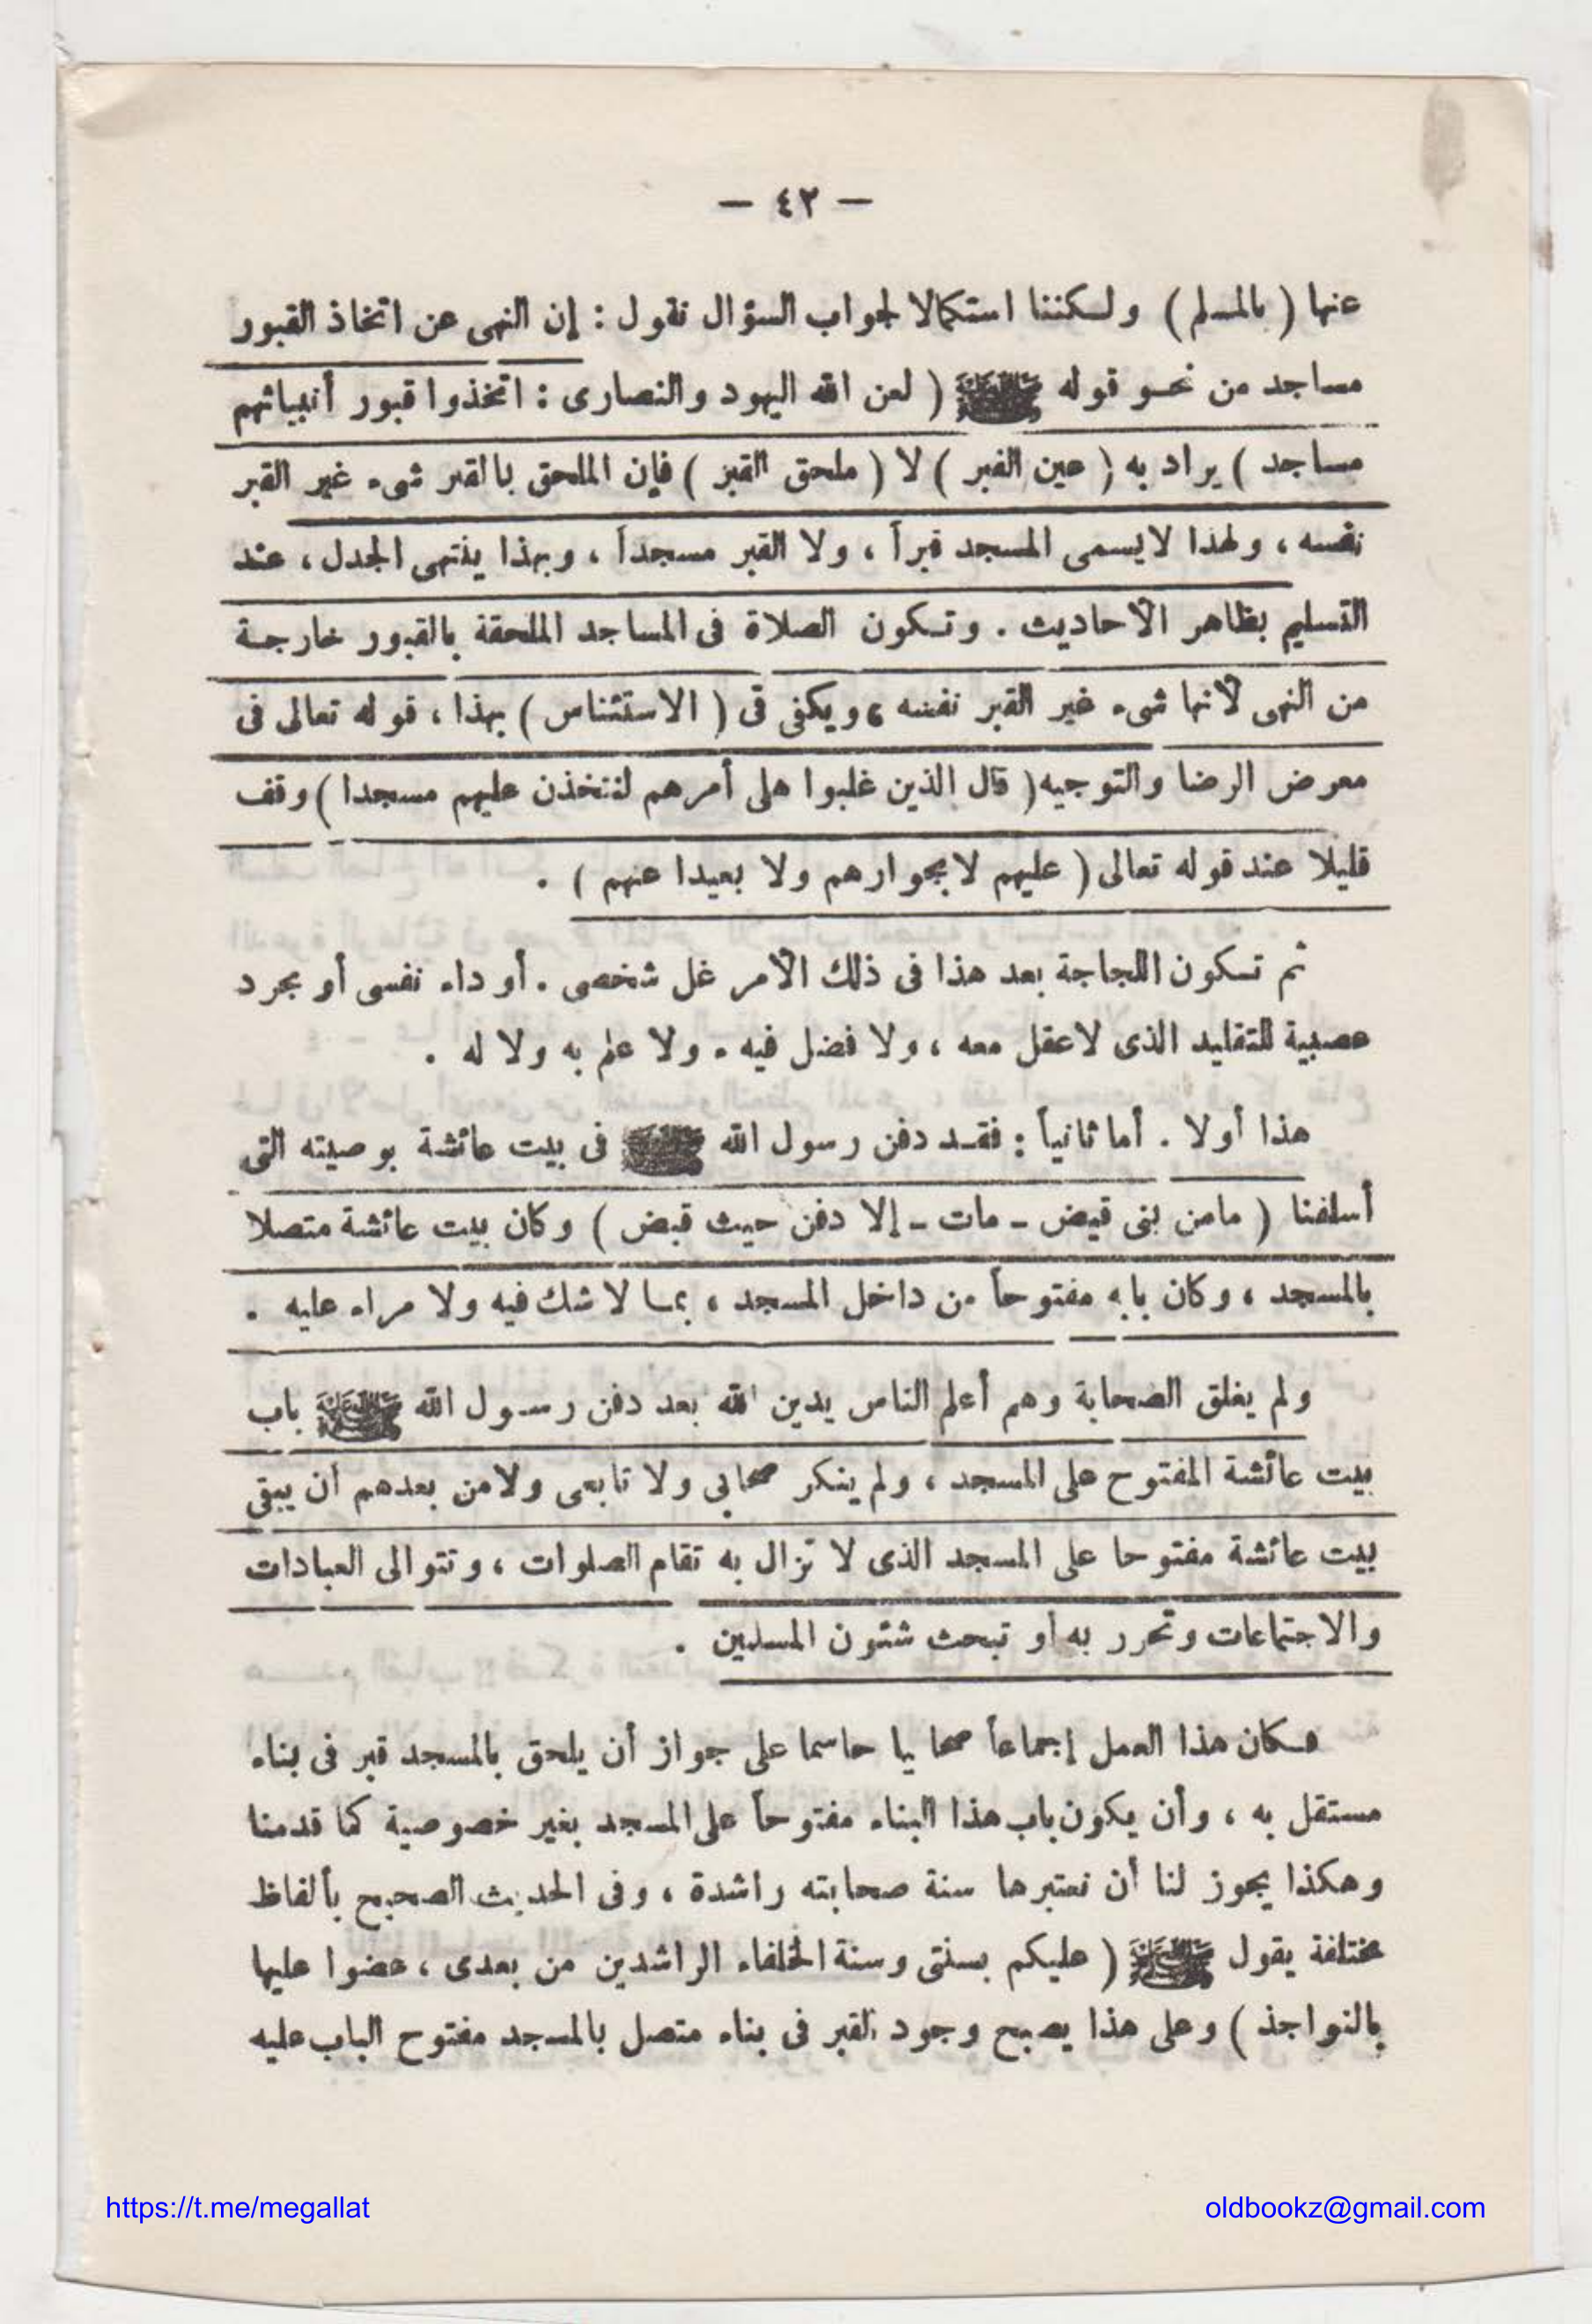 — ٤٢ —
عنها ( بالمسلم ) ولكننا استكمالا لجواب السؤال نقول : إن النهى عن اتخاذ القبور
مساجد من نحو قوله ﷺ ( لعن الله اليهود والنصارى : اتخذوا قبور أنبيائهم
مساجد ) يراد به ( عين القبر ) لا ( ملحق القبر ) فإن الملحق بالقبر شىء غير القبر
نفسه ، ولهذا لايسمى المسجد قبراً ، ولا القبر مسجداً ، وبهذا ينتهى الجدل ، عند
التسليم بظاهر الأحاديث . وتكون الصلاة فى المساجد الملحقة بالقبور خارجة
من النهى لأنها شىء غير القبر نفسه ، ويكفى فى ( الاستئناس ) بهذا ، قوله تعالى فى
معرض الرضا والتوجيه ( قال الذين غلبوا على أمرهم لنتخذن عليهم مسجدا ) وقف
قليلا عند قوله تعالى ( عليهم لا بجوارهم ولا بعيدا عنهم ) .
ثم تكون اللجاجة بعد هذا فى ذلك الأمر غل شخصى . أو داء نفسى أو مجرد
عصبية للتقليد الذى لاعقل معه ، ولا فضل فيه . ولا علم به ولا له .
هذا أولا . أما ثانياً : فقد دفن رسول الله ﷺ فى بيت عائشة بوصيته التى
أسلفنا ( مامن بنى قيض - مات - إلا دفن حيث قبض ) وكان بيت عائشة متصلا
بالمسجد ، وكان بابه مفتوحاً من داخل المسجد ، بما لا شك فيه ولا مراء عليه .
ولم يغلق الصحابة وهم أعلم الناس بدين الله بعد دفن رسول الله ﷺ باب
بيت عائشة المفتوح على المسجد ، ولم ينكر صحابى ولا تابعى ولامن بعدهم أن يبقى
بيت عائشة مفتوحا على المسجد الذى لا تزال به تقام الصلوات ، وتتوالى العبادات
والاجتماعات وتحرر به أو تبحث شئون المسلمين .
فكان هذا العمل إجماعاً صحابيا حاسما على جواز أن يلحق بالمسجد قبر فى بناء
مستقل به ، وأن يكون باب هذا البناء مفتوحاً على المسجد بغير خصوصية كما قدمنا
وهكذا يجوز لنا أن نعتبرها سنة صحابته راشدة ، وفى الحديث الصحيح بألفاظ
مختلفة يقول ﷺ ( عليكم بسنتى وسنة الخلفاء الراشدين من بعدى ، عضوا عليها
بالنواجذ ) وعلى هذا يصبح وجود القبر فى بناء متصل بالمسجد مفتوح الباب عليه
https://t.me/megallat
oldbookz@gmail.com